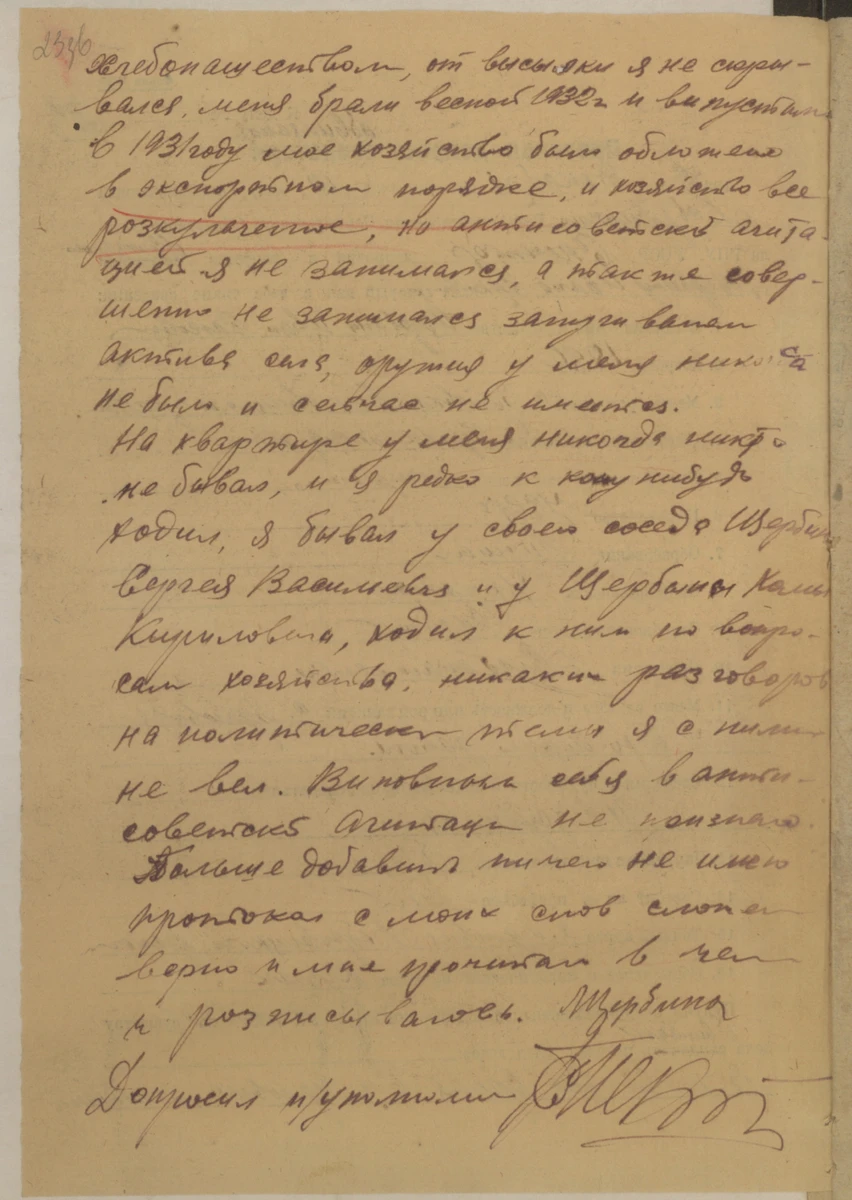 хлебопашеством, от высылки я не скры-
вался, меня брали весной 1932 г и выпустили
в 1931 году мое хозяйство было обложено
в экспортном порядке, и хозяйство все
розкулаченное, но антисоветской агита-
цией я не занимался, а также совер-
шенно не занимался запугиванем
актива села, оружия у меня никогда
не было и сейчас не имеется.
На квартире у меня никогда никто
не бывал, и я редко к кому нибудь
ходил, я бывал у своего соседа Щербины
Сергея Василиевича и у Щербины
Кириловича, ходил к ним по вопро-
сам хозяйства, никаких разговоров
на политически темы я с ними
не вел. Виновным себя в анти-
советской агитации не признаю.
Больше добавить ничего не имею
протокол с моих слов
верно и мне прочитан в чем
и розписываюсь. Щербина
Допросил п/уполном